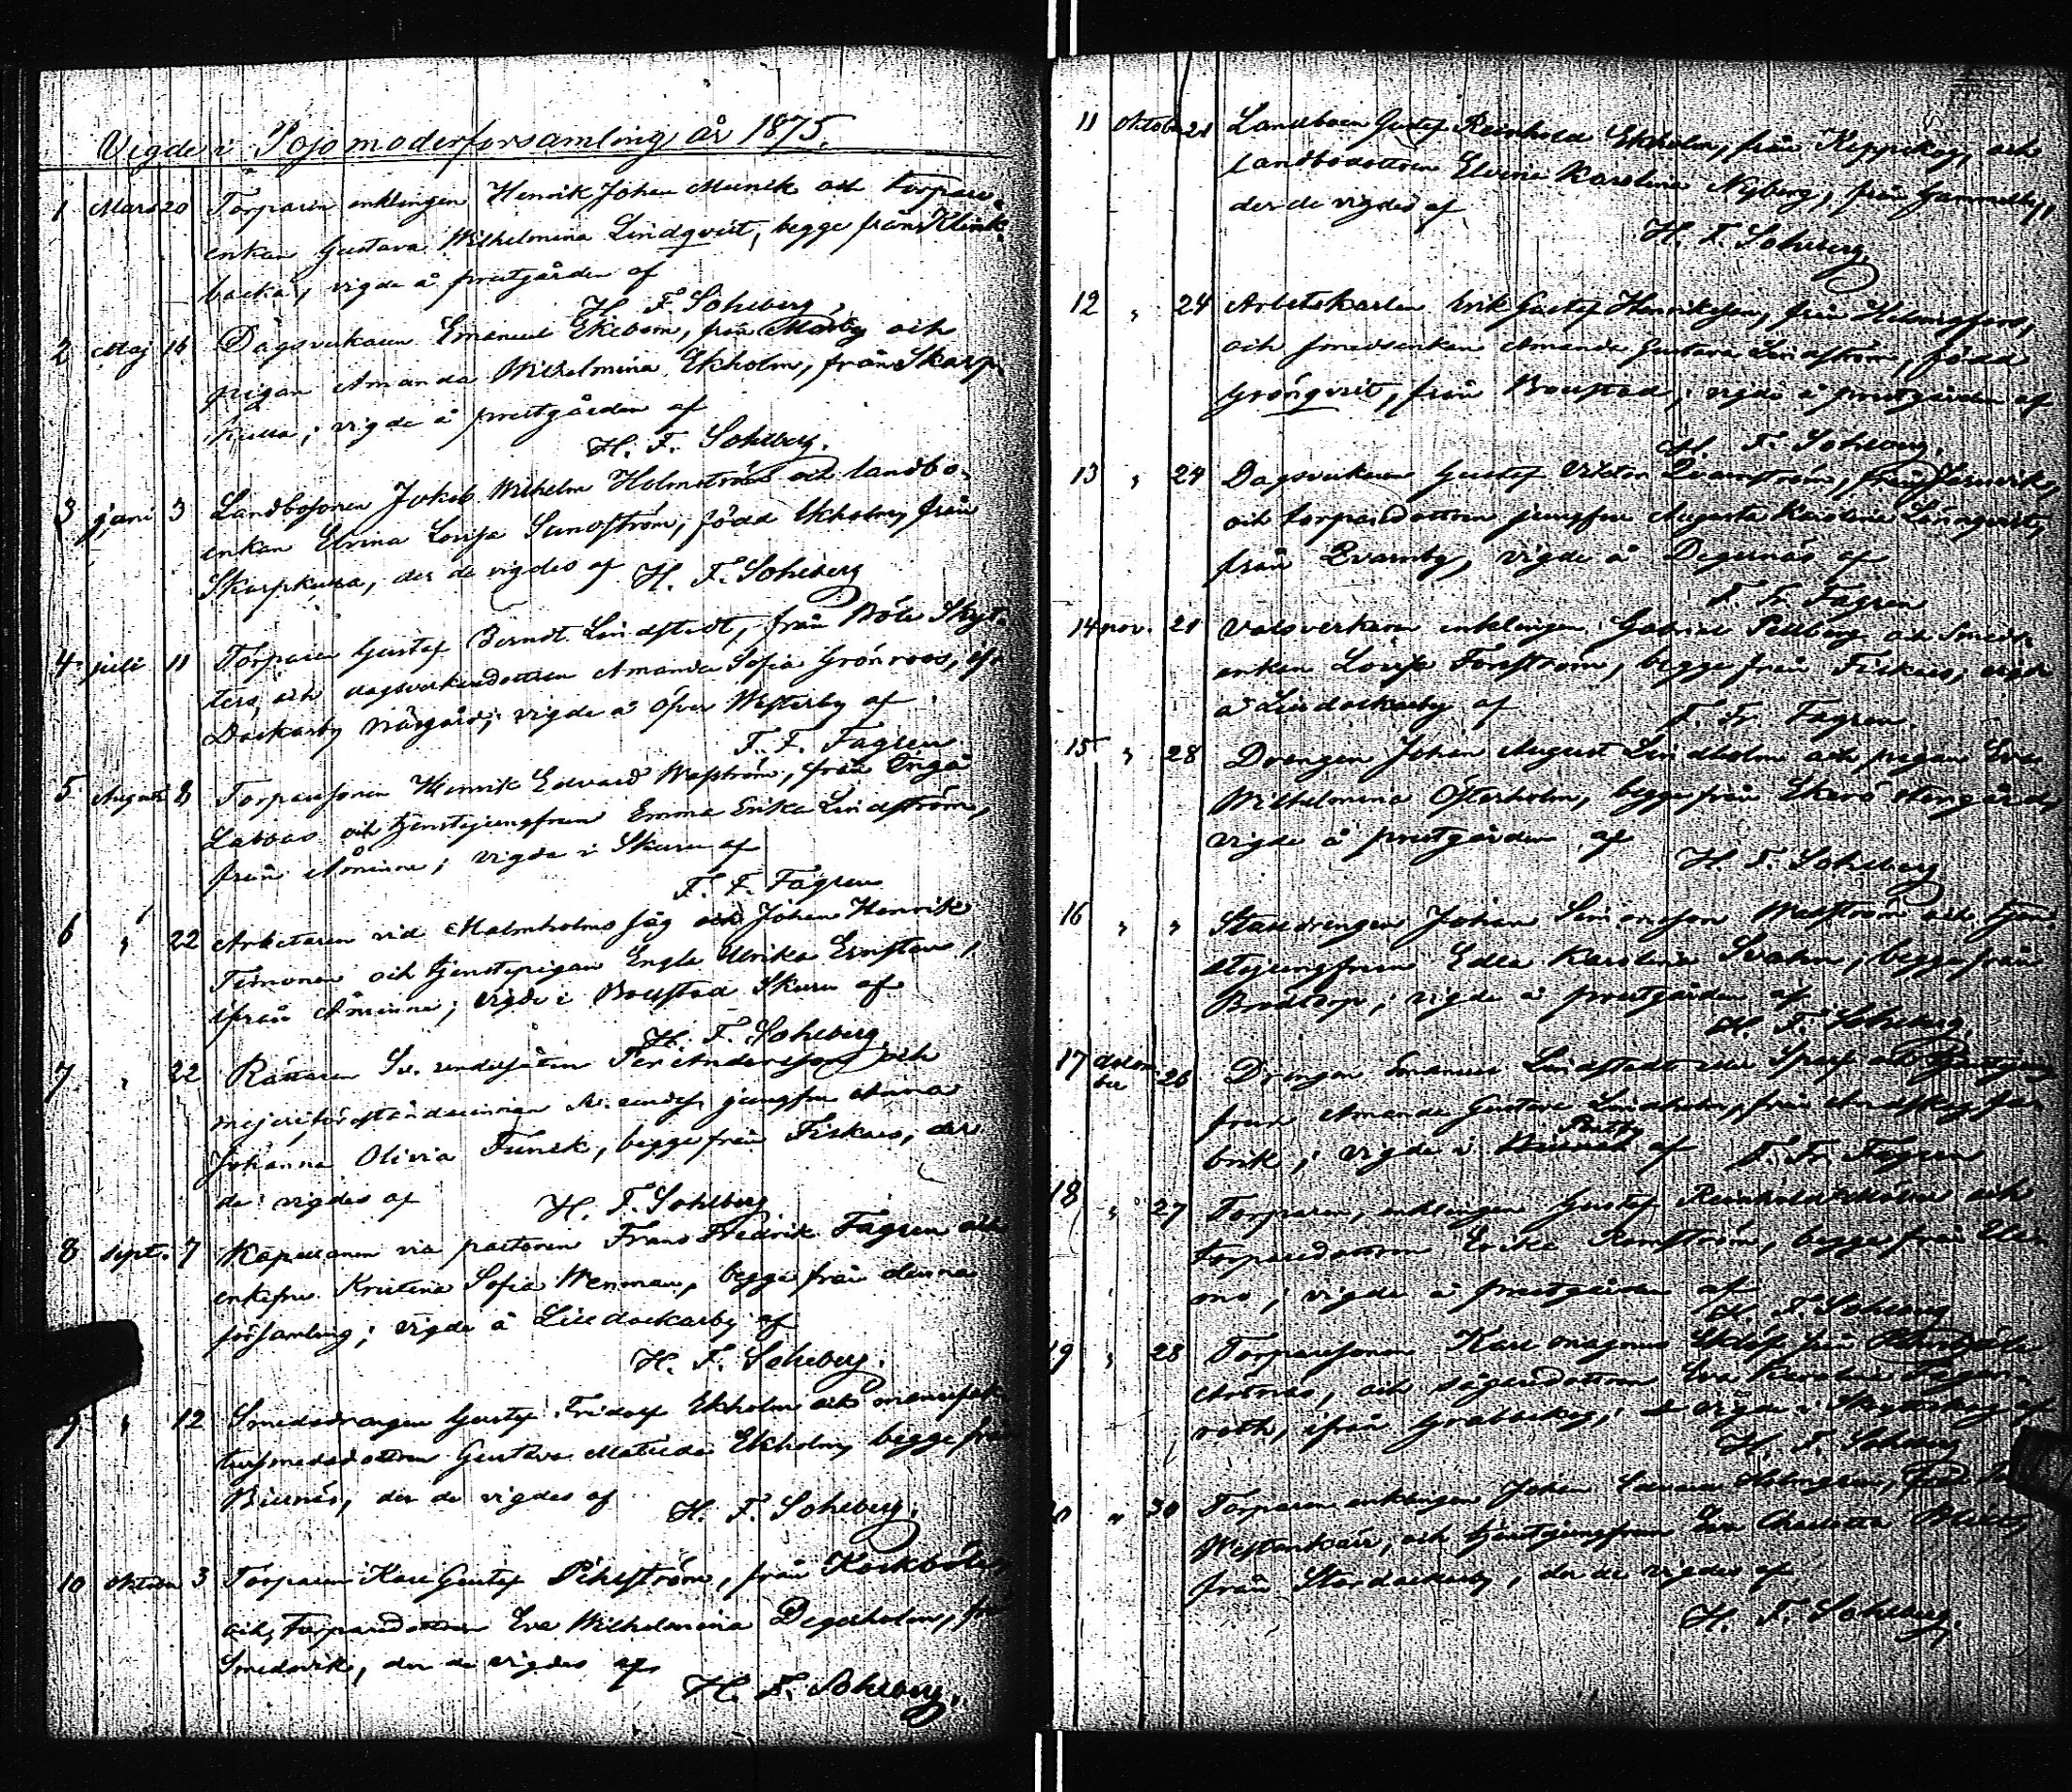 Vigde i Pojo moderförsamling år 1875.
1 Mars 20 Torparen enklingen Henrik Johan Munck och torpare-
enkan Gustava Wilhelmina Lindqvist, begge från Klink-
backa, vigde å prestgården af
H. F. Sohlberg
2 Maj 16 Dagsverkaren Emanuel Ekebom, från och
pigan Amanda Wilhelmina Ekholm, från Skarp-
kulla; vigde å prestgården af
H. F. Sohlberg.
3 juni 3 Landbosonen Jakob Wilhelm Holmström och landbo-
enkan Elvina Lovisa Sundström, född Ekholm, från
Skarpkulla, der de vigdes af H. F. Sohlberg
4 juli 11 Torparen Gustaf Berndt Lindstedt, från Böle Skyt-
ters, och dagsverkaredottren Amanda Sofia Grönroos, från
Dockarby Närgård; vigde å Öfver Westerby af
F. F. Fagren
5 Augusti 8 Torparesonen Henrik Edvard Wasström, från Ingå
Labbas och tjenstejungfrun Emma Erika Lindström,
från Åminne; vigde i Skuru af
F. F. Fagren
6 " 22 Arbetaren vid Malmholms såg Johan Henrik
Timonen och tjenstepigan Engla Ulrika
ifrån Åminne; vigde i Bollstad Skuru af
H. F. Sohlberg
7 " 22 Rättaren Sv. undersåten Per Andersson och
mejeriföreståndarinnan jungfru Anna
Johanna Olivia Funck, begge från Fiskars, der
de vigdes af H. F. Sohlberg
8 Sept. 7 Kapellanen vid pastoren Frans Fredrik Fagren och
enkefru Kristina Sofia Wenman, begge från denna
församling; vigde å Lilldockarby af
H. F. Sohlberg.
9 " 12 Smedsdrängen Gustaf Fridolf Ekholm och manufak-
tursmedsdottren Gustava Matilda Ekholm, begge från
Billnäs, der de vigdes af H. F. Sohlberg.
10 Oktober 3 Torparen Karl Gustaf Pihlström, från Kockböle,
och torparedottren Eva Wilhelmina Degerholm, från
Smedsvik, der de vigdes af
H. F. Sohlberg.
11 Oktober 21 Landboen Gustaf Reinhold Ekholm, från Reppskog, och
landbodottren Elvira Karolina Nyberg, från Gammelby,
der de vigdes af
H. F. Sohlberg.
12 " 24 Arbetskarlen Erik Gustaf Henriksson, från Helsingfors,
och smedsenkan Amanda Gustava Lindström, född
Grönqvist, från Bollstad; vigde å prestgården af
H. F. Sohlberg.
13 " 24 Dagsverkaren Gustaf Viktor Qvarnström, från
och torparedottren jungfru Augusta Karolina Lönnqvist,
från Qvarnby, vigde å Degernäs af
F. Fr. Fagren
14 nov. 21 Valsverkaren enklingen Gabriel Pettberg och smeds-
enkan Lovisa Forsström, begge från Fiskars, vigde
å Lilldockarby af F. Fr. Fagren.
15 " 28 Drengen Johan August Lindholm och pigan Eva
Wilhelmina Österholm, begge från Ekerö storgård,
vigde å prestgården af
H. F. Sohlberg
16 " " Stalldrengen Johan Simonsson Wasström och tjen-
stejungfrun Edla Karolina Svahn, begge från
Brödtorp; vigde å prestgården af
H. F. Sohlberg.
17 decem-
ber 26 Drengen Emanuel Lindstedt eller och tjenstejung-
frun Amanda Gustava Lindholm, från
bok; vigde i af F. Fr. Fagren
18 " 27 Torparen, enklingen Gustaf Reinhold och
torparedottren Erika Renström, begge från
mo; vigde å prestgården af
H. F. Sohlberg
19 " 28 Torparesonen Karl Magnus från
och sågaredottren Eva Karolina Fager-
roth, ifrån Grabbskog; vigde i Skytteskog af
H. F. Sohlberg
" 30 Torparen enklingen Johan Edvard Holmgren,
Westankärr, och tjenstjungfrun Eva Charlotta
från Stordockarby, der de vigdes af
H. F. Sohlberg.